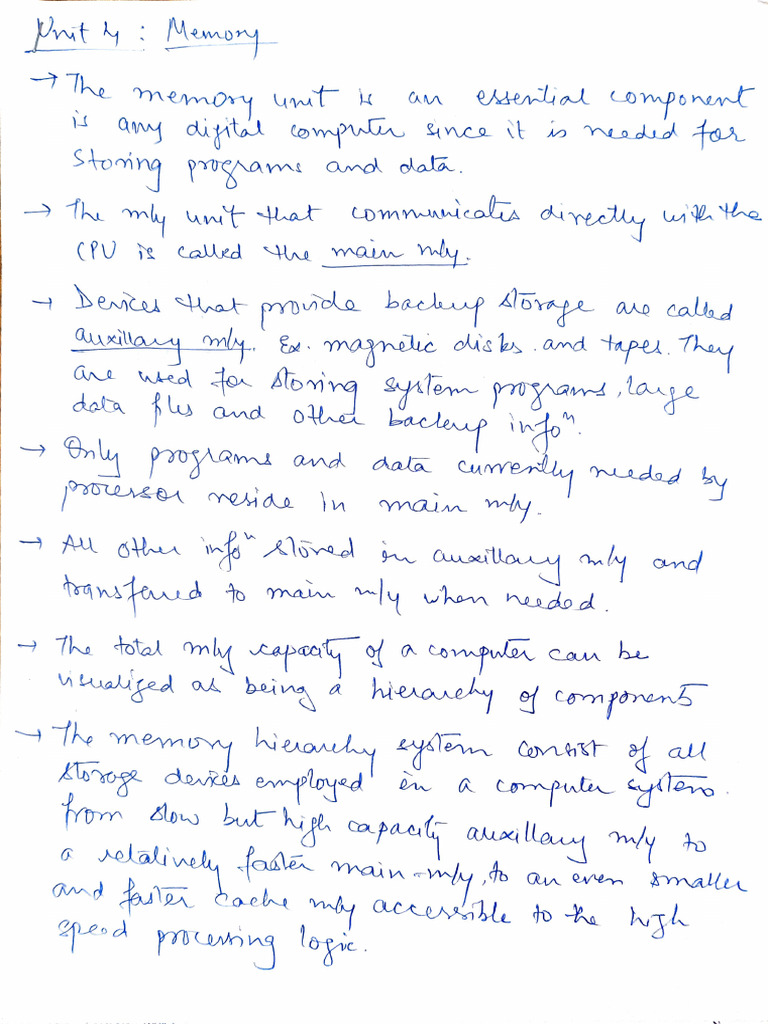 Unit 4 : Memory
→ The memory unit is an essential component
is any digital computer since it is needed for
storing programs and data.
→ The m/y unit that communicates directly with the
CPU is called the main m/y.
→ Devices that provide backup storage are called
auxillary m/y. Ex. magnetic disks and tapes. They
are used for storing system programs, large
data files and other backup infoⁿ.
→ Only programs and data currently needed by
processor reside in main m/y.
→ All other infoⁿ stored in auxillary m/y and
transferred to main m/y when needed.
→ The total m/y capacity of a computer can be
visualized as being a hierarchy of components
→ The memory hierarchy system consist of all
storage devices employed in a computer system
from slow but high capacity auxillary m/y to
a relatively faster main m/y, to an even smaller
and faster cache m/y accessible to the high
speed processing logic.